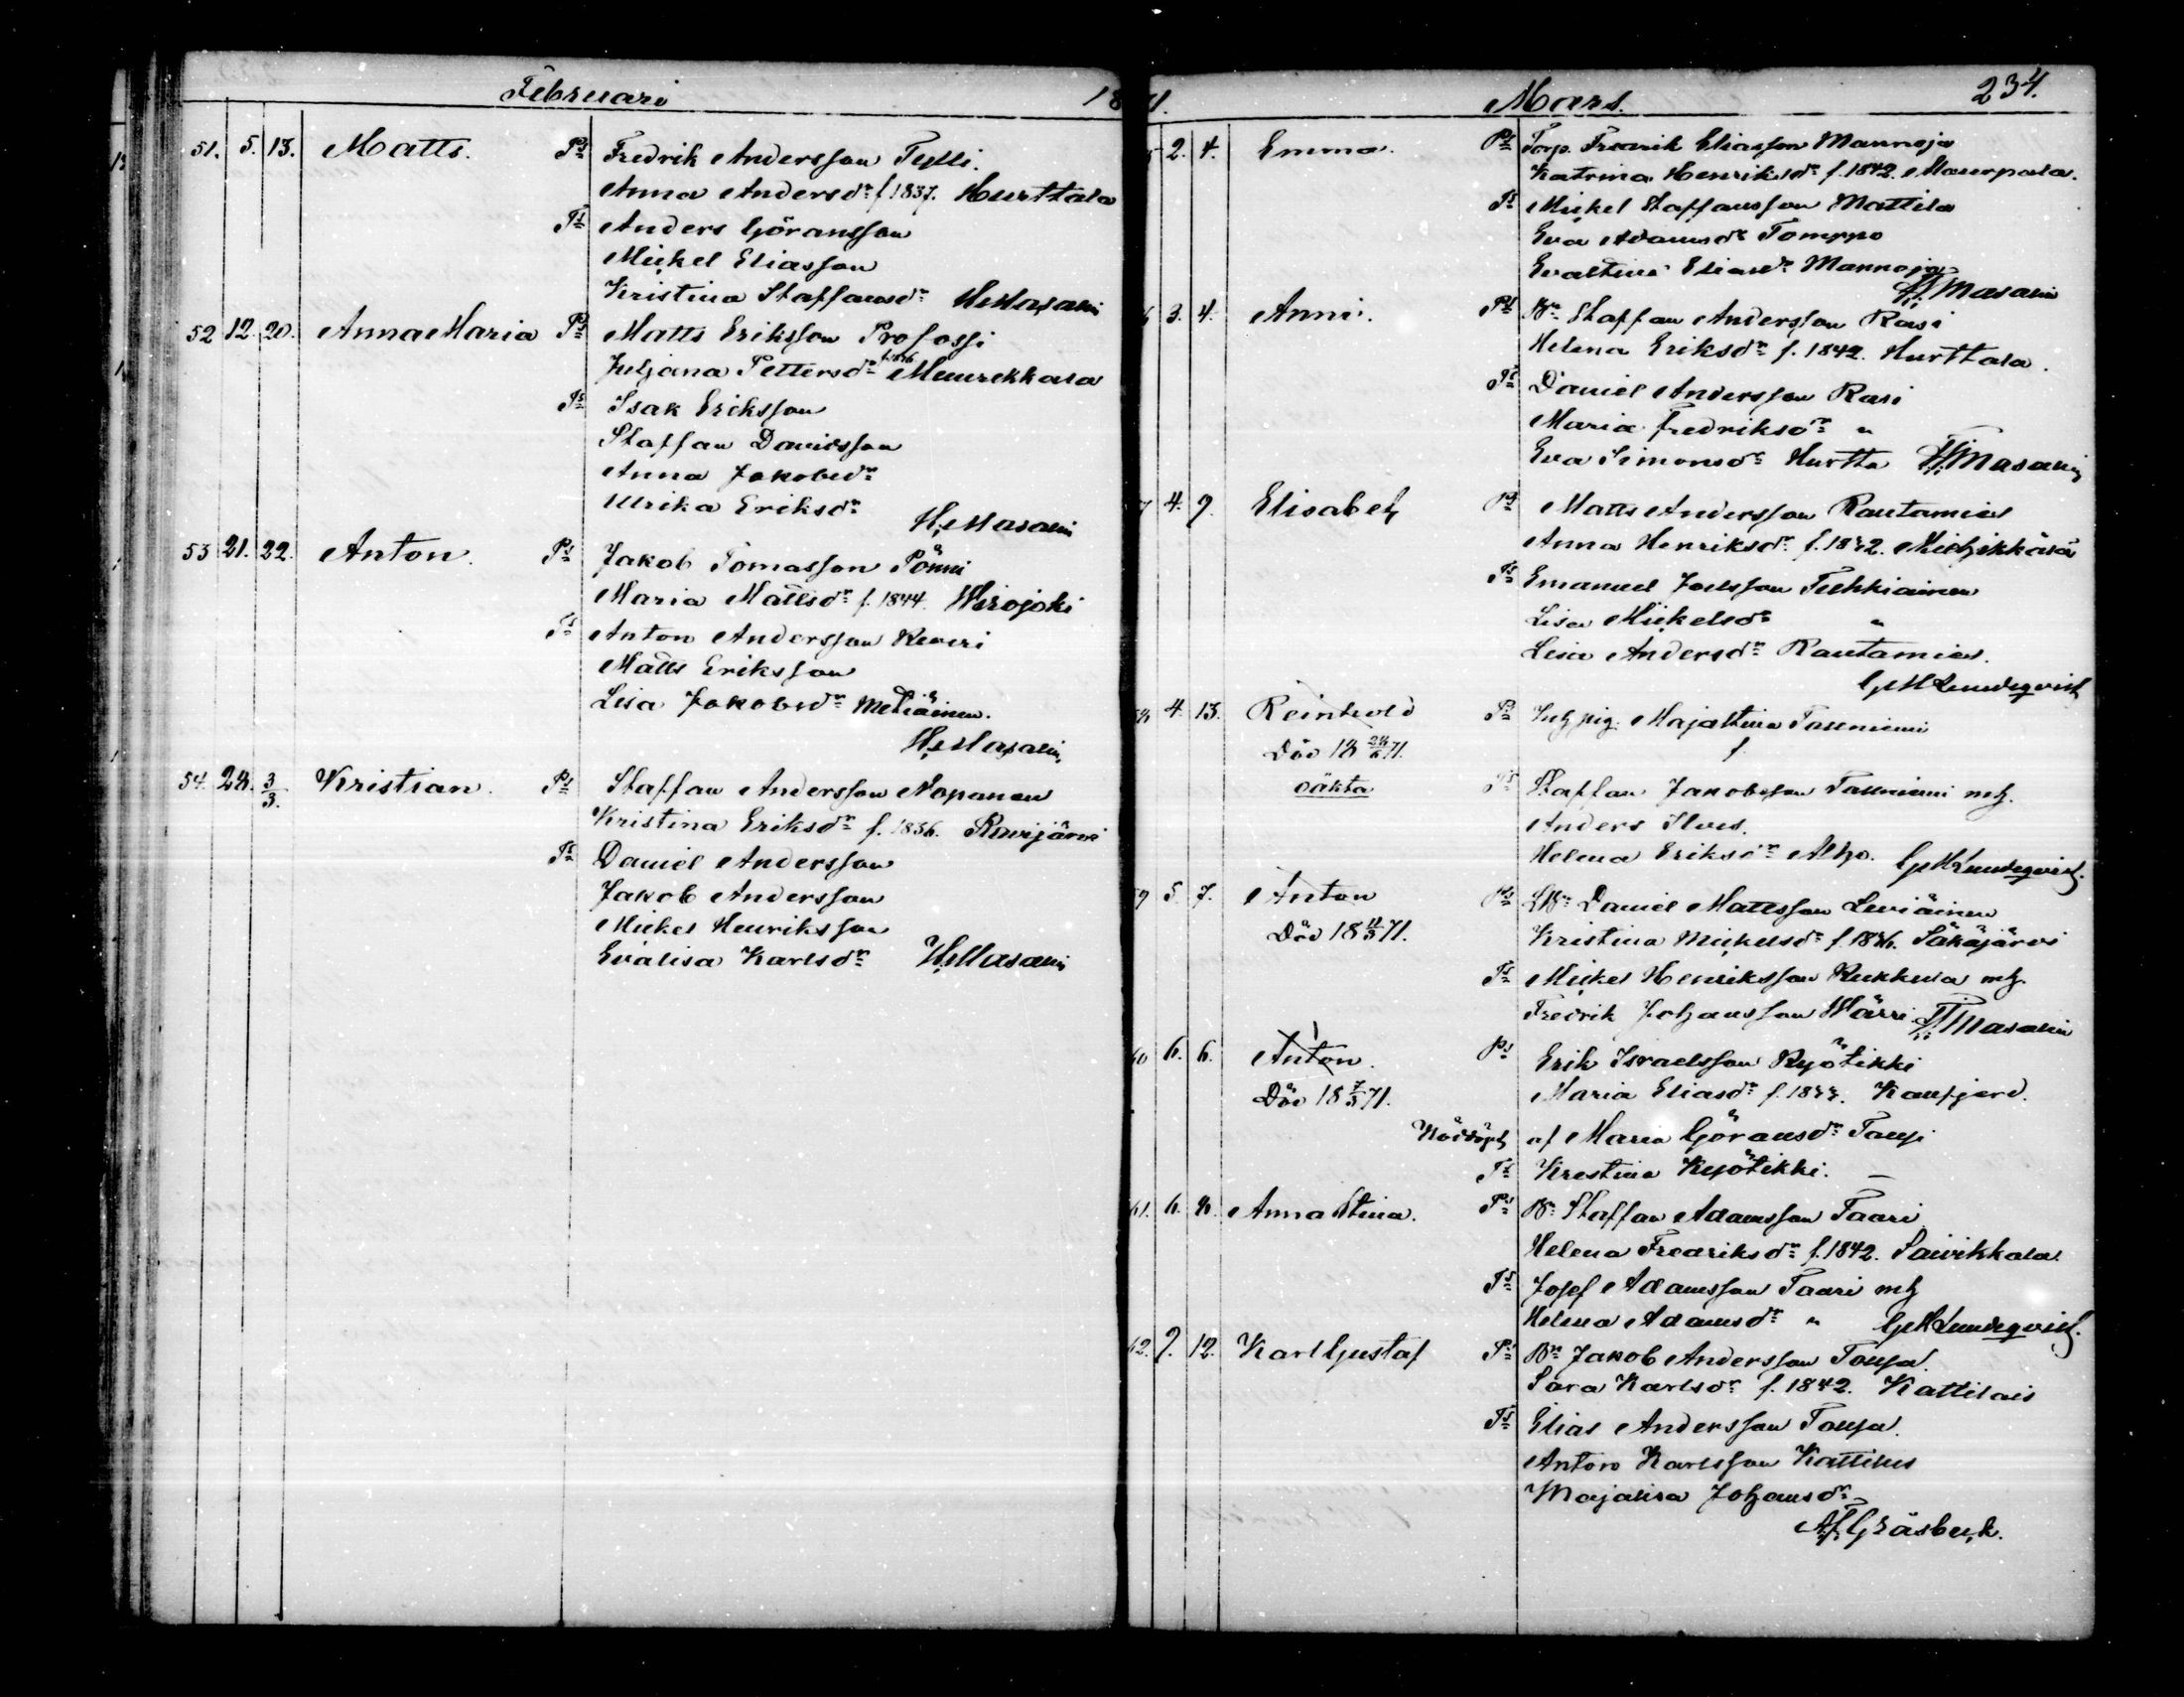 Februari 18
51. 5. 13. Matts. Ps Fredrik Andersson Tylli.
Anna Andersdr f 1837. Hurttala
Ts Anders Göransson
Mickel Eliasson
Kristina Staffansdr H. Masalin
52 12. 20. Anna Maria Ps Matts Eriksson Profossi
Juljana Pettersdr Muurikkala
Ts Isak Eriksson
Staffan Davidsson
Anna Jakobsdr
Ulrika Eriksdr
H. Masalin
53 21. 22. Anton. Ps Jakob Tomasson Pönni
Maria Mattsdr f. 1844. Wirojoki
Ts Anton Andersson Reveri
Matts Eriksson
Lisa Jakobsdr Metiäinen.
H. Masalin
54. 28. 3/3. Kristian. Ps Staffan Andersson Nopanen
Kristina Eriksdr f. 1836. Ravijärvi
Ts Daniel Andersson
Jakob Andersson
Mickel Henriksson
Evalisa Karlsdr H. Masalin
71. Mars. 234.
2. 4. Emma. Ps Torp. Fredrik Eliasson Mannoja
Katrina Henriksdr f. 1842. Maurpala.
Ts Mickel Staffansson Mattila
Eva Adamsdr Tomppo
Evastina Eliasdr Mannoja
H. Masalin
3. 4. Anni. Ps Bn Staffan Andersson Rasi
Helena Eriksdr f. 1842. Hurttala.
Ts Daniel Andersson Rasi
Maria Fredriksdr "
Eva Simonsdr Hurtta H. Masalin
4. 9. Elisabeth Ps Matts Andersson Rautamies
Anna Henriksdr f. 1842. Miehikkälä
Ts Emanuel Joelsson Tuhkiainen
Lisa Mickelsdr "
Lisa Andersdr Rautamies.
G. M. Lundeqvist
58 4. 13. Reinhold Ps Inh. pig. Majastina Tanniemi
Död 18 28/6 71.
oäkta Ts Staffan Jakobsson Tanniemi mh.
Anders Ilves.
Helena Eriksdr Alho. G. M. Lundeqvist.
59 5. 7. Anton Ps LBn Daniel Matsson Leviäinen
Död 18 11/3 71. Kristina Mickelsdr f. 1836. Säkäjärvi
Ts Mickel Henriksson Kukkula mh.
Fredrik Johansson Wärri H. Masalin
60 6. 6. Anton. Ps Erik Israelsson Kyötikki
Död 18 7/3 71. Maria Eliasdr f. 1844. Kansjerd.
Nöddöpt af Maria Göransdr Tausi
Ts Krestina Kyötikki. —
61. 6. 8. Anna Stina. Ps Bn Staffan Adamsson Taari
Helena Fredriksdr f. 1842. Saivikkala.
Ts Josef Adamsson Taari mh
Helena Adamsdr " G. M. Lundeqvist.
62. 9. 12. Karl Gustaf Ps Bn Jakob Andersson Tousa.
Sara Karlsdr f. 1842. Kattilais
Ts Elias Andersson Tousa.
Anton Karlsson Kattilus
Majalisa Johansdr
A. F. Gräsbeck.